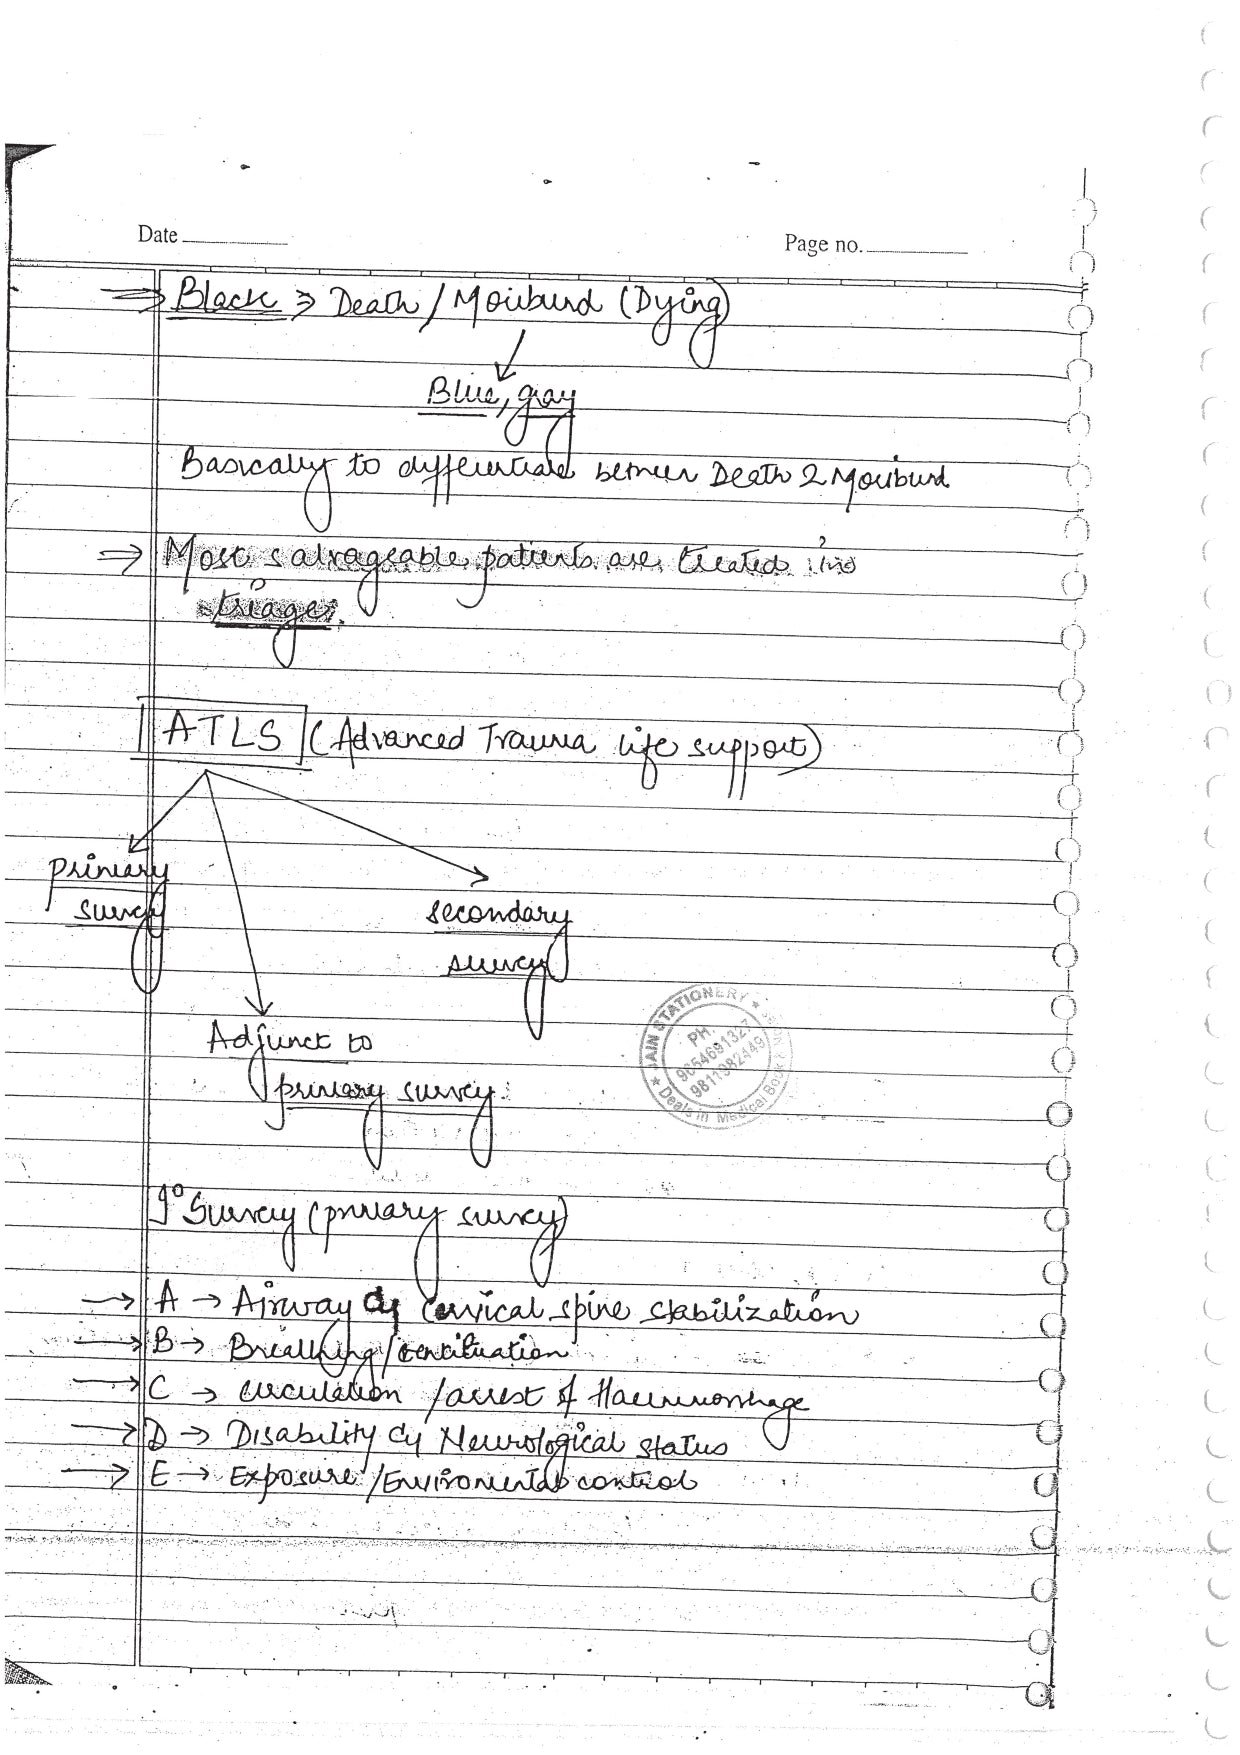 Date
Page no.
⇒ Black ⇒ Death / Moriburd (Dying)
Blue, gray
Basically to differentiate between Death & Moriburd
⇒ Most salvageable patients are treated in
triage.
ATLS (Advanced Trauma life support)
primary
survey
secondary
survey
Adjunct to
primary survey.
1° Survey (primary survey)
→ A → Airway c̄ cervical spine stabilization
→ B → Breathing / ventilation
→ C → circulation / arrest of Haemmorrhage
→ D → Disability c̄ Neurological status
→ E → Exposure / Enviromental control
★ JAIN STATIONERY ★
PH.
9654691327
9811982149
Deals in Medical Book